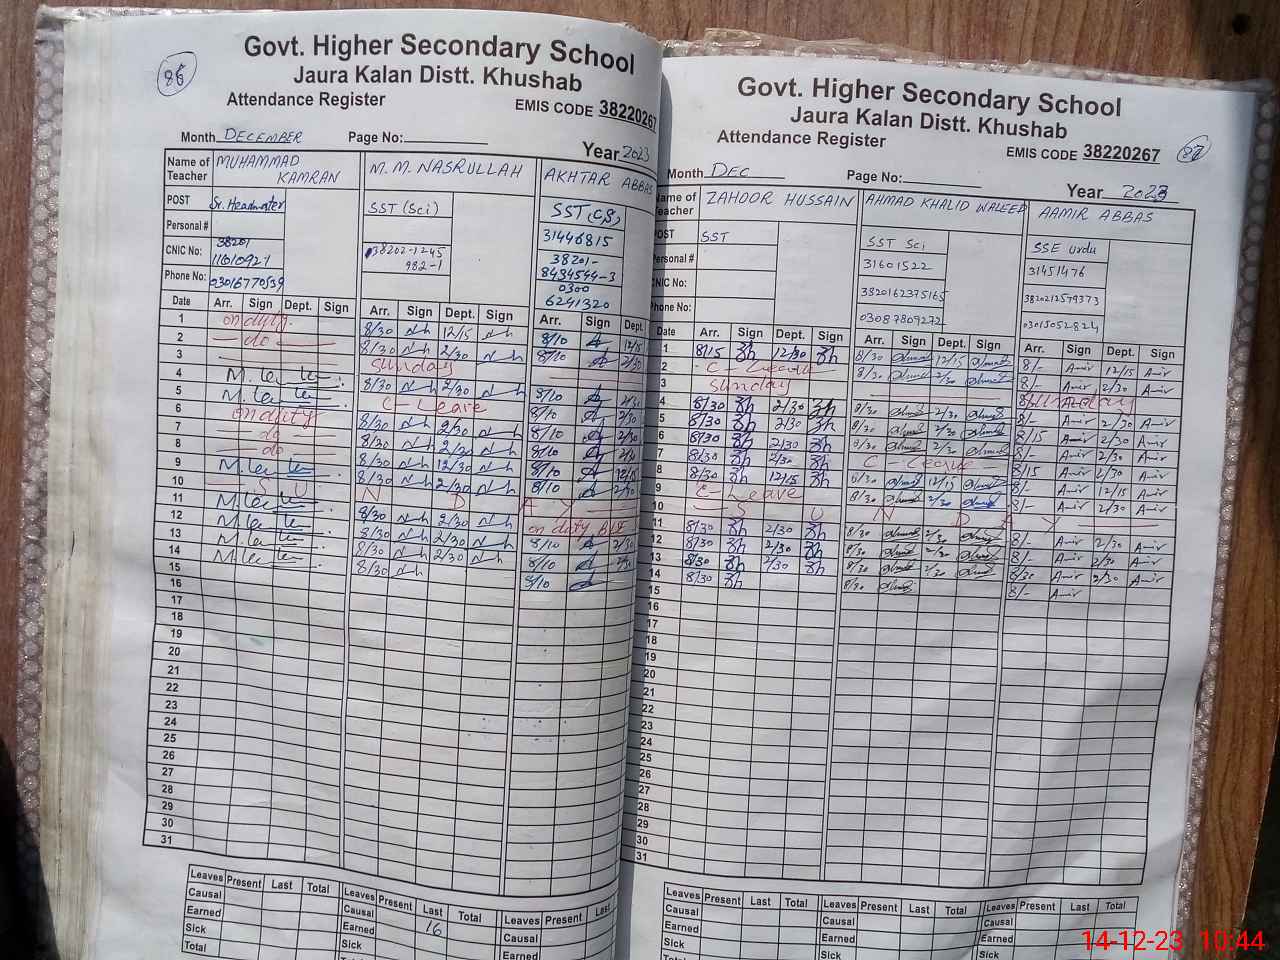 86
Govt. Higher Secondary School
Jaura Kalan Distt. Khushab
Attendance Register
EMIS CODE 38220267
Month DECEMBER Page No: Year 2023
Name of Teacher MUHAMMAD KAMRAN M.M. NASRULLAH AKHTAR ABBAS
POST Sr. Headmaster SST (Sci) SST, CS,
Personal # 31446815
CNIC No: 38201 11610921 38202-1245 982-1 38201- 8434544-3
Phone No: 03016770539 0300 6241320
Date Arr. Sign Dept. Sign Arr. Sign Dept. Sign Arr. Sign Dept.
1 on duty 8/30 12/15 8/10 12/15
2 do 8/30 2/30 8/10 2/30
3 Sunday
4 8/30 2/30 8/10 2/30
5 C-Leave 8/10 2/30
6 on duty 8/30 2/30 8/10 2/30
7 do 8/30 2/30 8/10
8 do 8/30 12/30 8/10 12/15
9 8/30 2/30 8/10 2/30
10 S U N D A Y
11 8/30 2/30 on duty
12 8/30 2/30 8/10 2/30
13 8/30 2/30 8/10
14 8/30 8/10
15
16
17
18
19
20
21
22
23
24
25
26
27
28
29
30
31
Leaves Present Last Total Leaves Present Last Total Leaves Present Last
Causal Causal Causal
Earned Earned 16 Earned
Sick Sick
Total
87
Govt. Higher Secondary School
Jaura Kalan Distt. Khushab
Attendance Register
EMIS CODE 38220267
Month DEC Page No: Year 2023
Name of Teacher ZAHOOR HUSSAIN AHMAD KHALID WALEED AAMIR ABBAS
POST SST SST Sci SSE Urdu
Personal # 31601522 31451476
CNIC No: 3820162375165 3820212579373
Phone No: 03087809272 03015052824
Date Arr. Sign Dept. Sign Arr. Sign Dept. Sign Arr. Sign Dept. Sign
1 8/15 12/30 8/30 12/15 8/- Amir 12/15 Amir
2 C-Leave 8/30 2/30 8/- Amir 2/30 Amir
3 Sunday
4 8/30 2/30 8/30 2/30 8/- Amir 2/30 Amir
5 8/30 2/30 8/30 2/30 8/15 Amir 2/30 Amir
6 8/30 2/30 8/30 2/30 8/- Amir 2/30 Amir
7 8/30 2/30 C-Leave 8/15 Amir 2/30 Amir
8 8/30 12/15 8/30 12/15 8/- Amir 12/15 Amir
9 C-Leave 8/30 2/30 8/- Amir 2/30 Amir
10 S U N D A Y
11 8/30 2/30 8/30 2/30 8/- Amir 2/30 Amir
12 8/30 2/30 8/30 2/30 8/- Amir 2/30 Amir
13 8/30 2/30 8/30 2/30 8/30 Amir 2/30 Amir
14 8/30 8/30 8/- Amir
15
16
17
18
19
20
21
22
23
24
25
26
27
28
29
30
31
Leaves Present Last Total Leaves Present Last Total Leaves Present Last Total
Causal Causal Causal
Earned Earned Earned
Sick Sick Sick
14-12-23 10:44